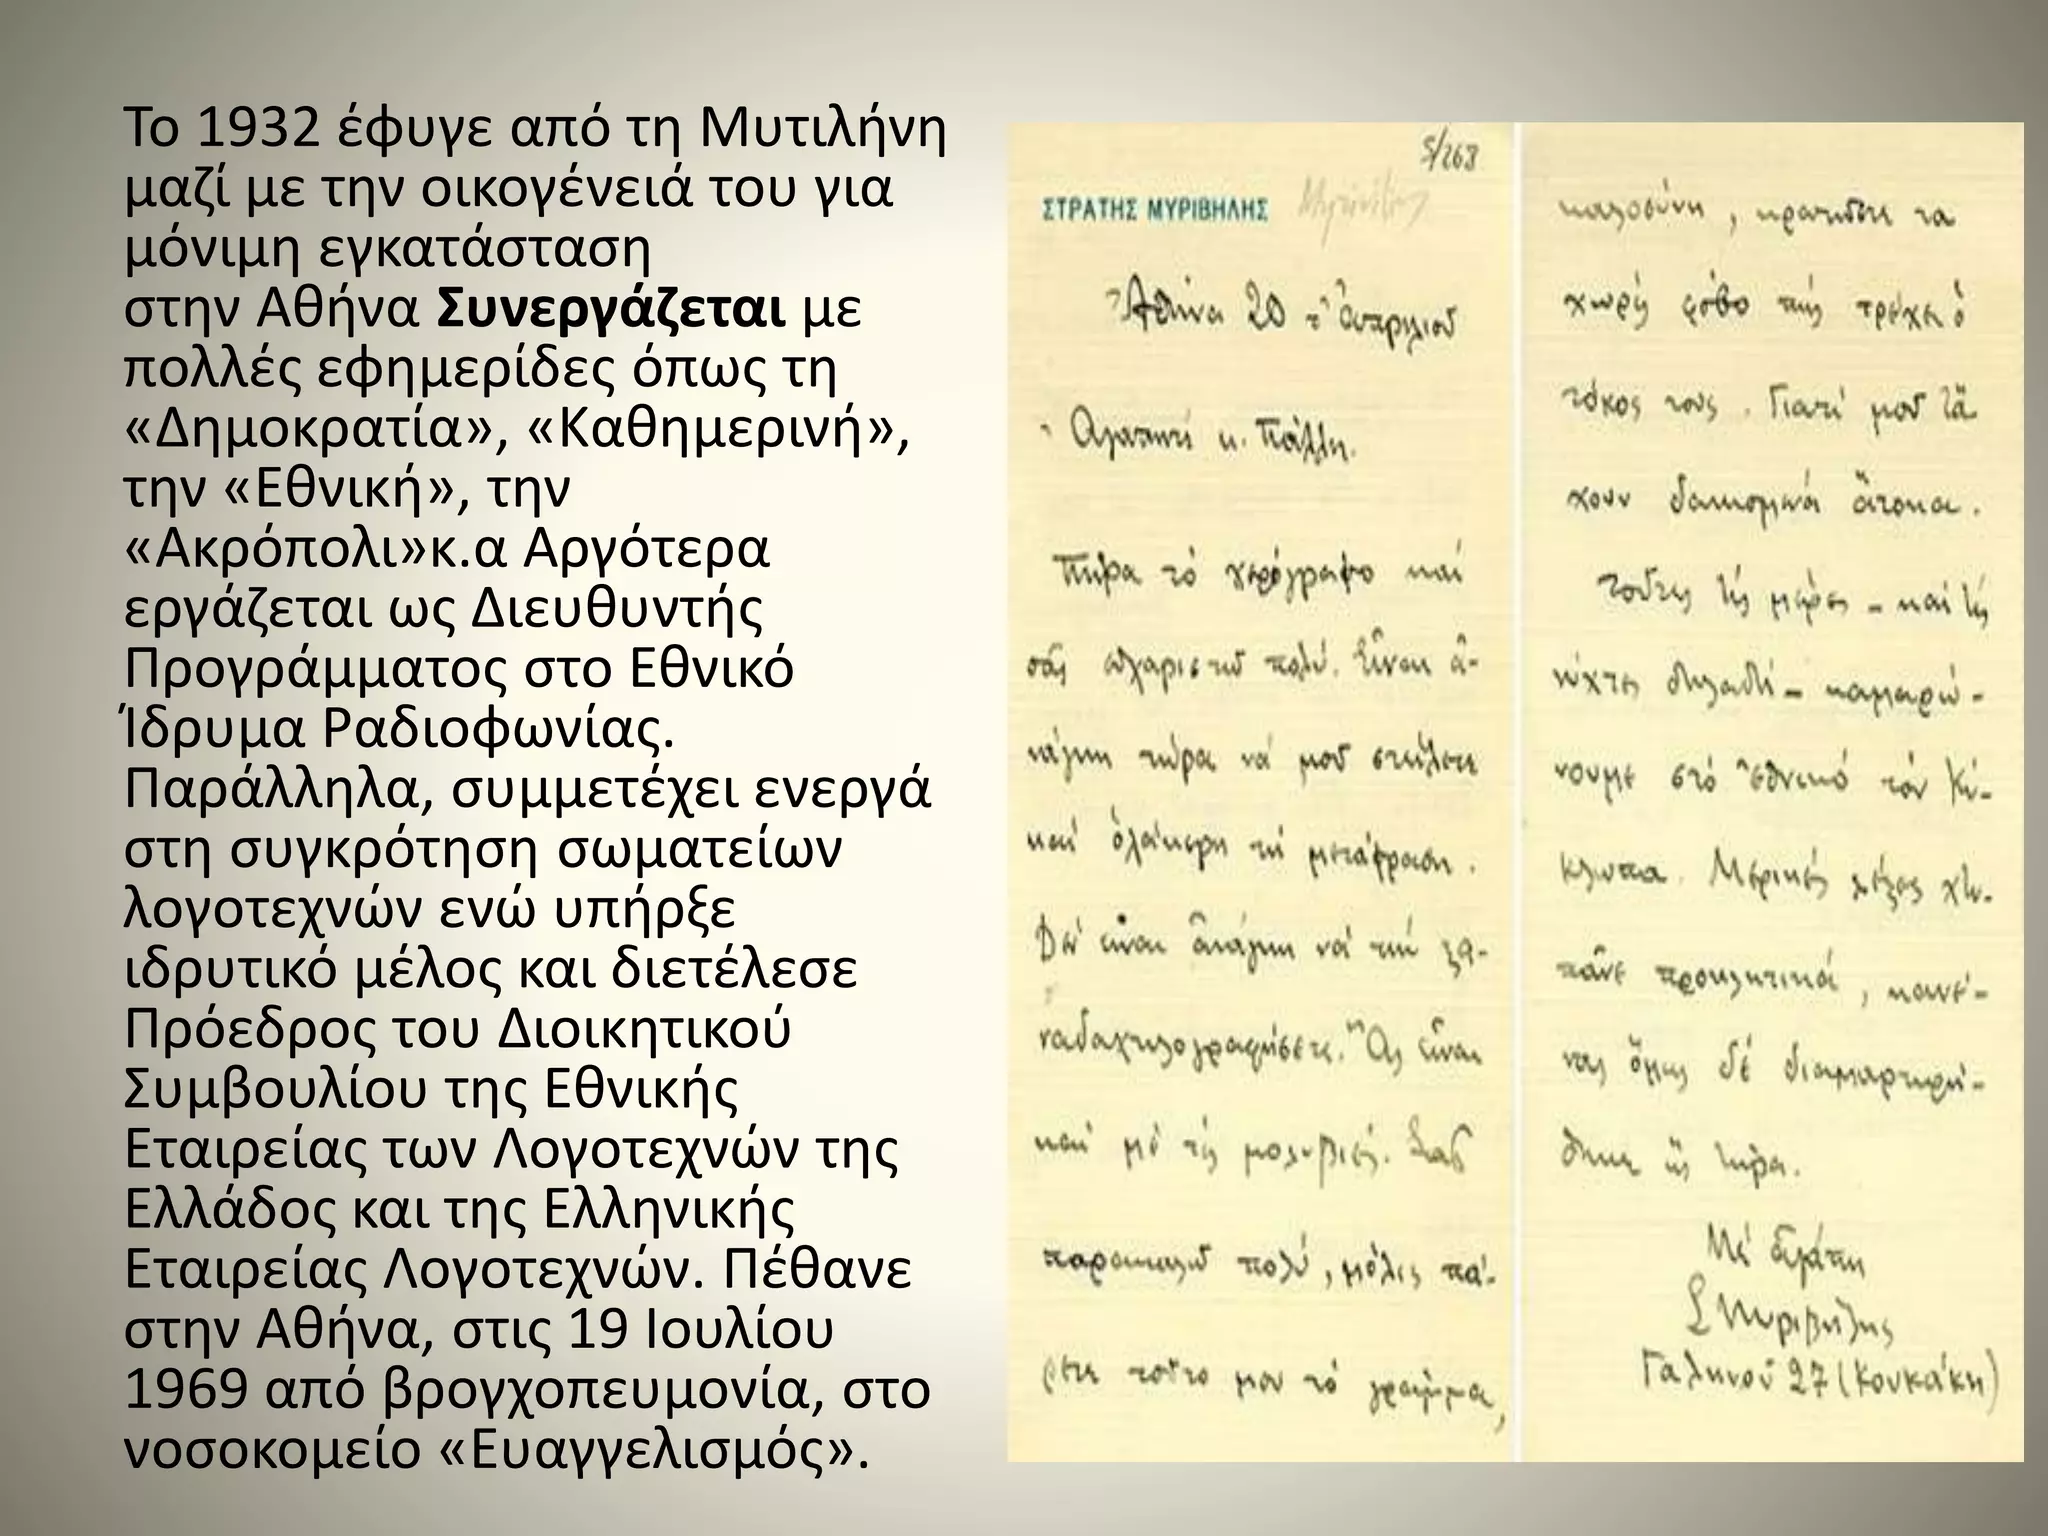 Το 1932 έφυγε από τη Μυτιλήνη
μαζί με την οικογένειά του για
μόνιμη εγκατάσταση
στην Αθήνα Συνεργάζεται με
πολλές εφημερίδες όπως τη
«Δημοκρατία», «Καθημερινή»,
την «Εθνική», την
«Ακρόπολι»κ.α Αργότερα
εργάζεται ως Διευθυντής
Προγράμματος στο Εθνικό
Ίδρυμα Ραδιοφωνίας.
Παράλληλα, συμμετέχει ενεργά
στη συγκρότηση σωματείων
λογοτεχνών ενώ υπήρξε
ιδρυτικό μέλος και διετέλεσε
Πρόεδρος του Διοικητικού
Συμβουλίου της Εθνικής
Εταιρείας των Λογοτεχνών της
Ελλάδος και της Ελληνικής
Εταιρείας Λογοτεχνών. Πέθανε
στην Αθήνα, στις 19 Ιουλίου
1969 από βρογχοπευμονία, στο
νοσοκομείο «Ευαγγελισμός».
5/268
ΣΤΡΑΤΗΣ ΜΥΡΙΒΗΛΗΣ
Ἀθήνα 20 τ' Ἀπριλιοῦ
Ἀγαπητέ κ. Πάλλη.
Πῆρα τό χερόγραφο καί
σᾶς εὐχαριστῶ πολύ. Εἶναι ἀ-
νάγκη τώρα νά μοῦ στείλετε
καί ὁλάκερη τή μετάφραση.
Δέν εἶναι ἀνάγκη νά τήν ξα-
ναδαχτυλογραφήσετε. Ἄς εἶναι
καί μέ τίς μολυβιές. Σᾶς
παρακαλῶ πολύ, μόλις πά-
ρετε τοῦτο μου τό γράμμα,
καλοσύνη, κρατῆστε τα
χωρίς φόβο πώς τρέχει ὁ
τόκος τους. Γιατί μοῦ τἄ
χουν δανεισμένα ἄτοκα.
Τοῦτες τίς μέρες - καί τίς
νύχτες δηλαδή - καμαρώ-
νουμε στό Ἐθνικό τόν Κύ-
κλωπα. Μερικές λέξες χτυ-
πᾶνε προκλητικά, κανέ-
νας ὅμως δέ διαμαρτυρή-
θηκε ὥς τώρα.
Μέ ἀγάπη
Σ Μυριβήλης
Γαληνοῦ 27 (Κουκάκη)